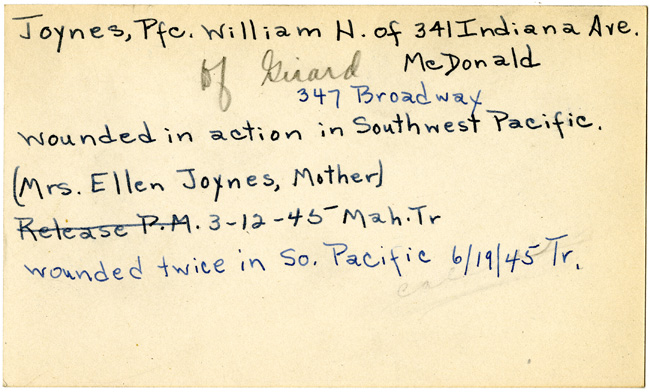 Joynes, Pfc. William H. of 341 Indiana Ave.
McDonald
of Girard
347 Broadway
wounded in action in Southwest Pacific.
(Mrs. Ellen Joynes, Mother)
Release P.M. 3-12-45 Mah. Tr
wounded twice in So. Pacific 6/19/45 Tr.